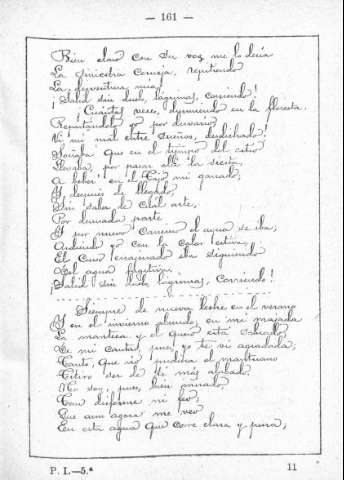 — 161 —
Bien claro con su voz me lo decía
La siniestra corneja, repitiendo
La desventura mía.
¡Salid sin duelo, lágrimas, corriendo!
¡Cuántas veces, durmiendo en la floresta
Reputándolo yo por desvarío
Vi mi mal entre sueños, desdichado!
Soñaba que en el tiempo del estío
Llevaba, por pasar allí la siesta,
A beber en el Tajo mi ganado;
Y después de llegado,
Sin saber de cuál arte,
Por desusada parte
Y por nuevo camino el agua se iba;
Ardiendo yo con la calor estiva,
El curso enajenado iba siguiendo
Del agua fugitiva.
¡Salid sin duelo, lágrimas, corriendo!
Siempre de nueva leche en el verano
Y en el invierno abundo, en mi majada
La manteca y el queso está sobrado;
De mi cantar, pues, yo te vi agradada,
Tanto, que no pudiera el mantuano
Títiro ser de ti más alabado.
No soy, pues, bien mirado,
Tan disforme ni feo;
Que aun agora me veo
En esta agua que corre clara y pura,
P. I.—5.ª 11